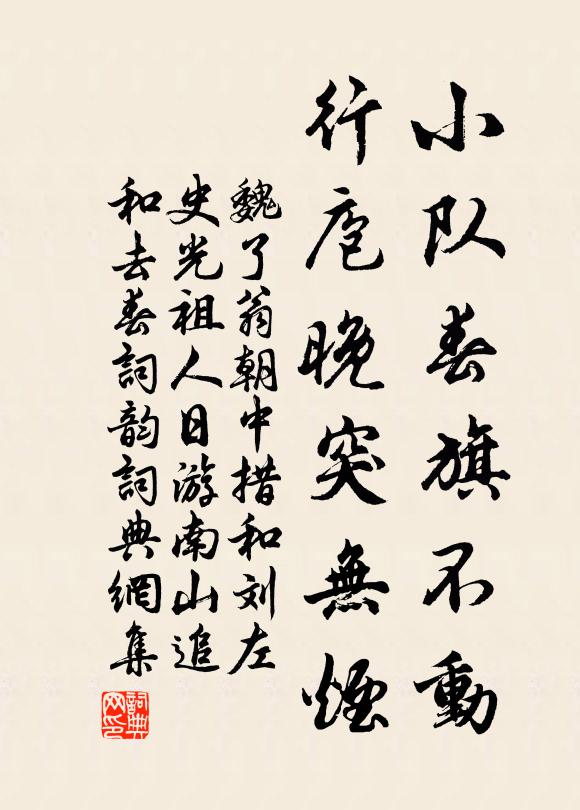 小队春旗不動
行庖晚突無煙
魏了翁朝中措和刘左
史光祖人日游南山追
和去春詞韵詞典網集
詞典网印